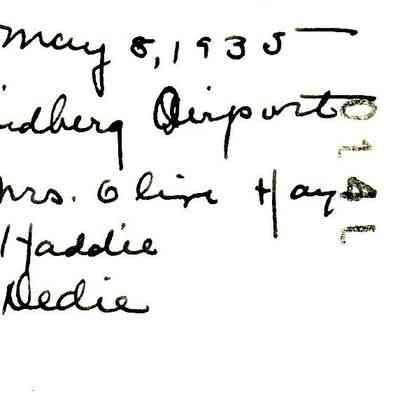 May 8, 1935
idberg Airport
Mrs. Olive Hay
Haddie
Dedie